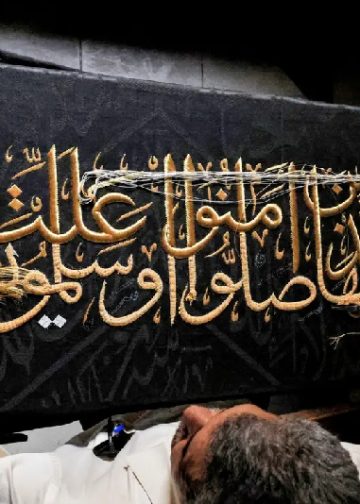 امنوا عليه
صلوا وسلموا